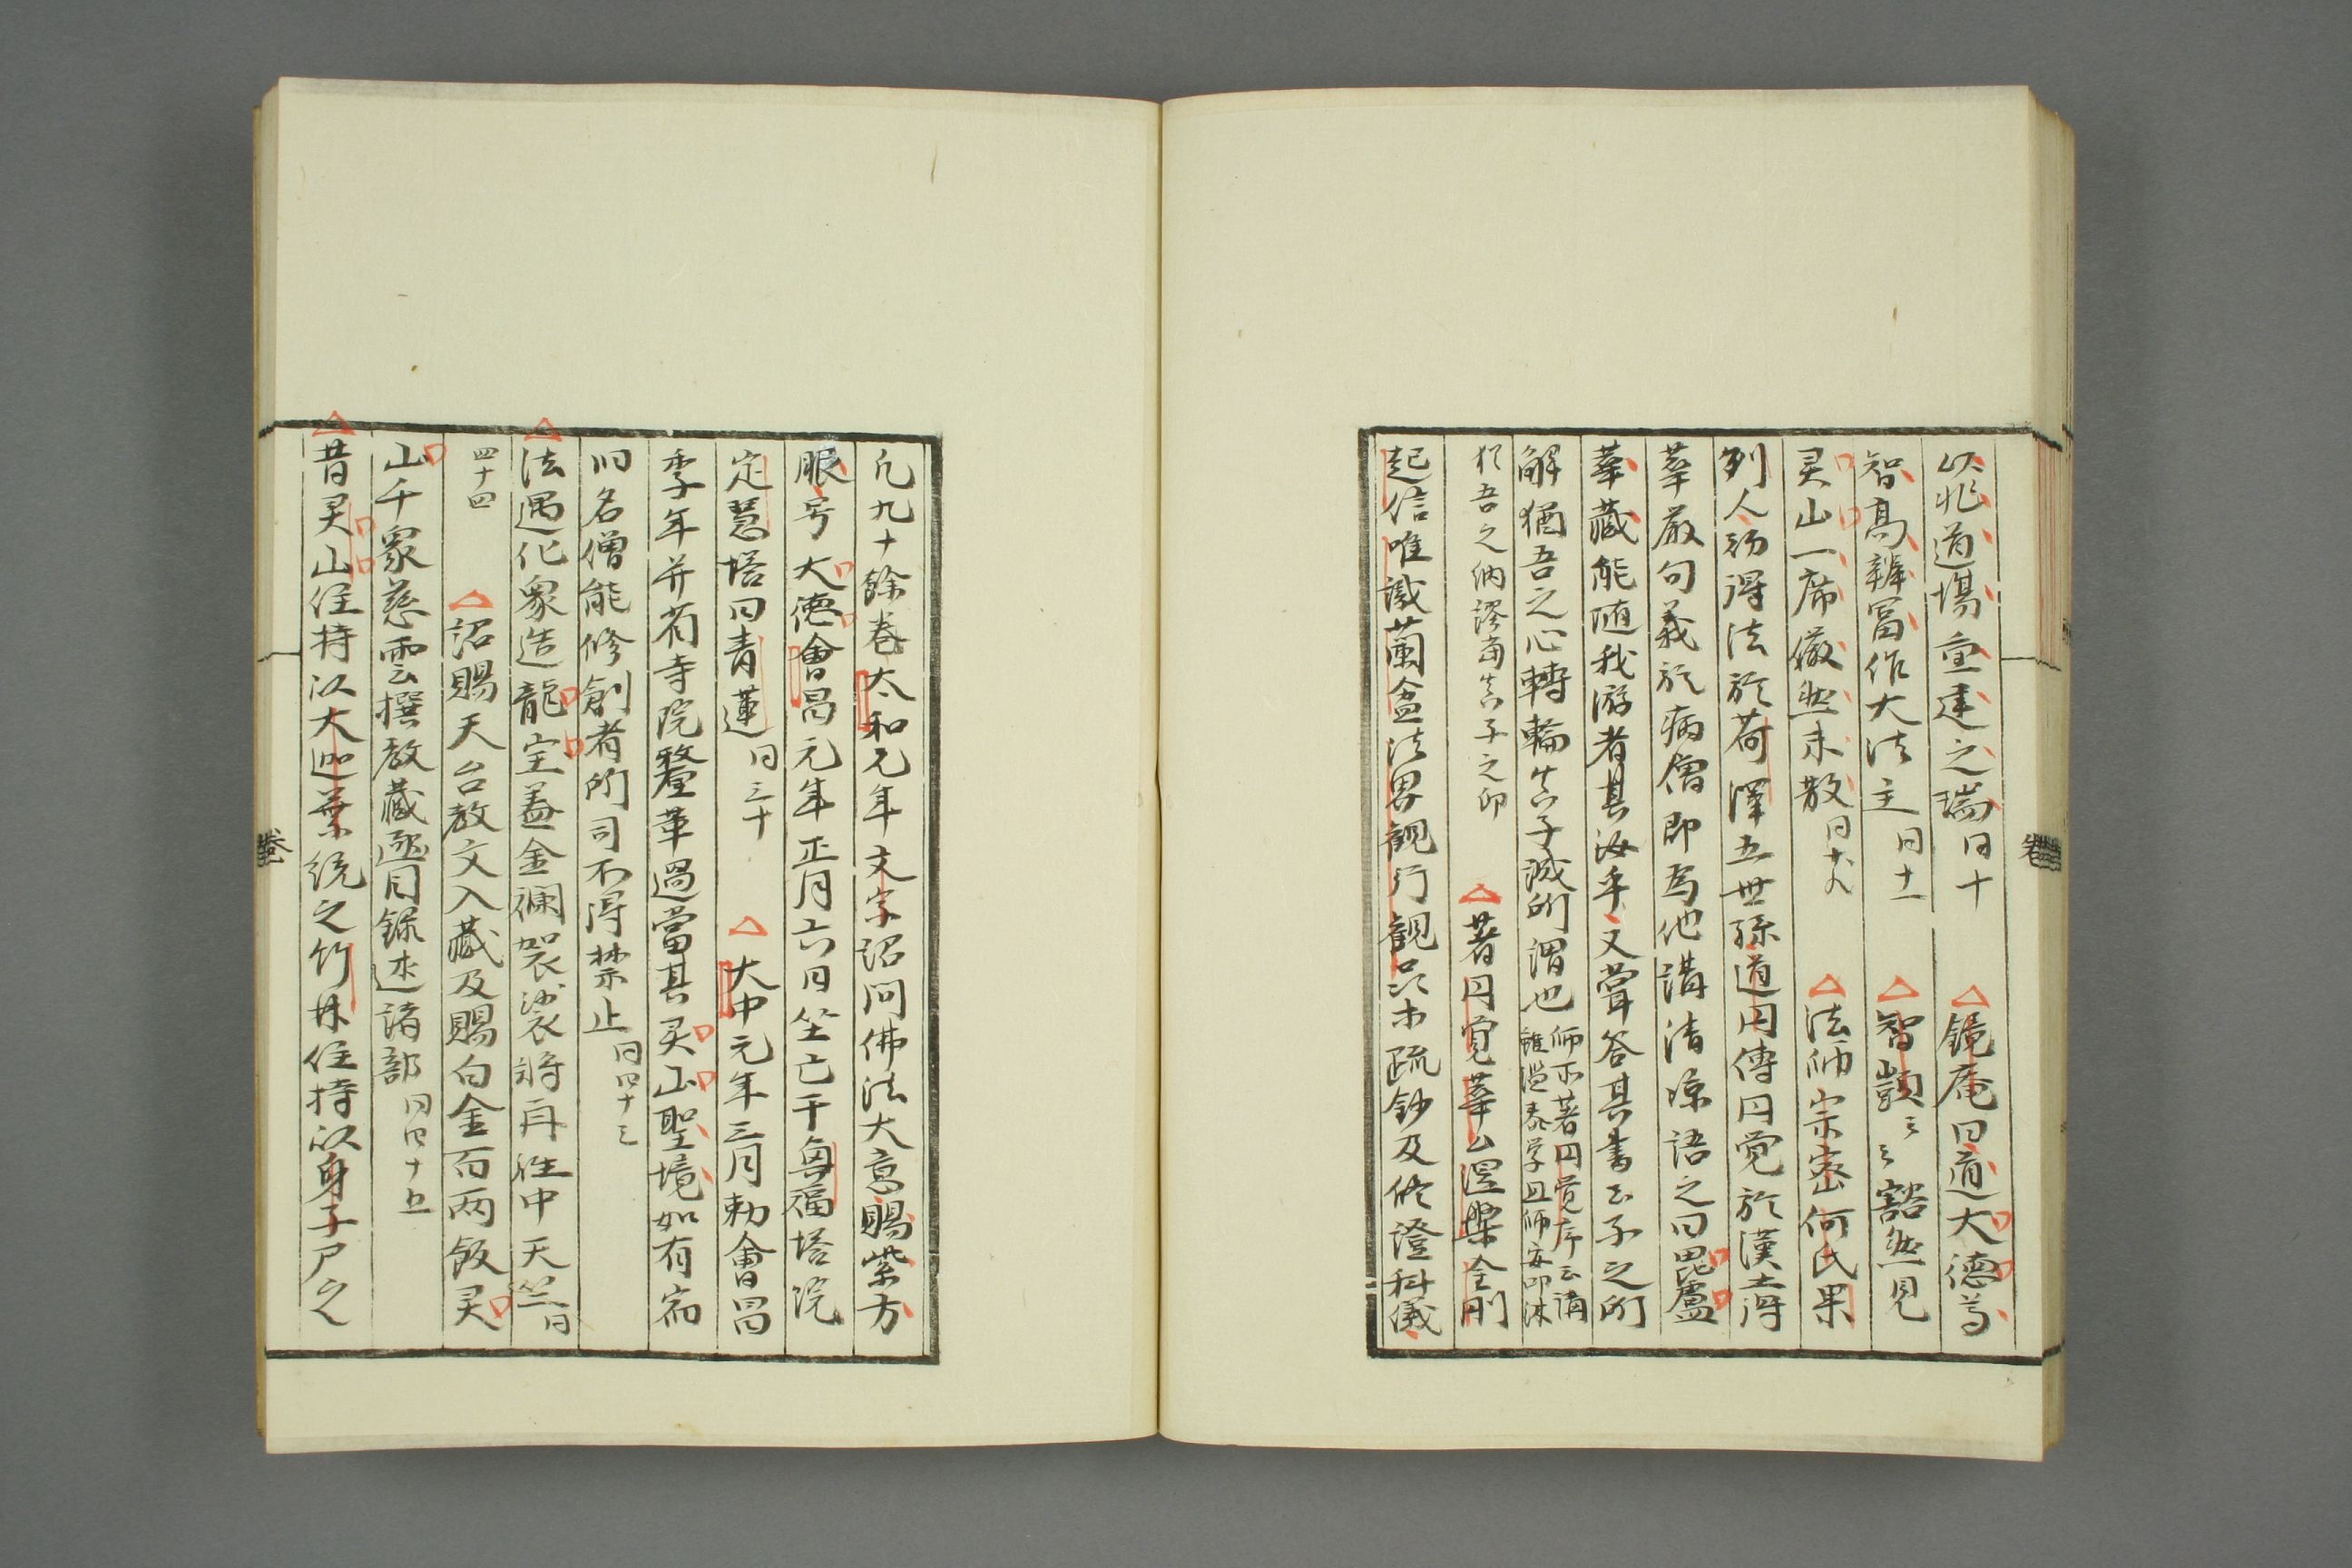 以兆道場重建之瑞 同十 △鏡庵曰道大德尊
智高辯富作大法主 同十一 △智顗云云豁然見
灵山一席儼然未散 同十八 △法師宗密何氏果
列人初得法於荷澤五世孫道円傳円覚於漢壽
華嚴句義於病僧即為他講清凉語之曰毘盧
華藏能随我游者其汝乎文聲答其書云子之所
解猶吾之心轉輪真子誠所謂也 師所著円覚序云講雖濫泰学且師安叩沐
猶吾之納謬當真子之印 △著円覚華厳涅槃金剛
起信唯識蘭盆法界観行観只木疏鈔及修證科儀
凡九十餘卷太和元年文宗詔問佛法大意賜紫方
服号大徳會昌元年正月六日坐亡于每福塔院
定慧塔曰青蓮 同三十 △大中元年三月勅會昌
季年并有寺院釐革過當其灵山聖境如有宿
旧名僧能修創者所司不得禁止 同四十三
△法遇化衆造龍宝盖金襴袈裟将再往中天竺 同
四十四 △詔賜天台教文入藏及賜白金百两飯灵
山千衆慈雲撰教藏逐目録述諸部 同四十五
△昔灵山住持以大迦葉統之竹林住持以身子尸之
卷